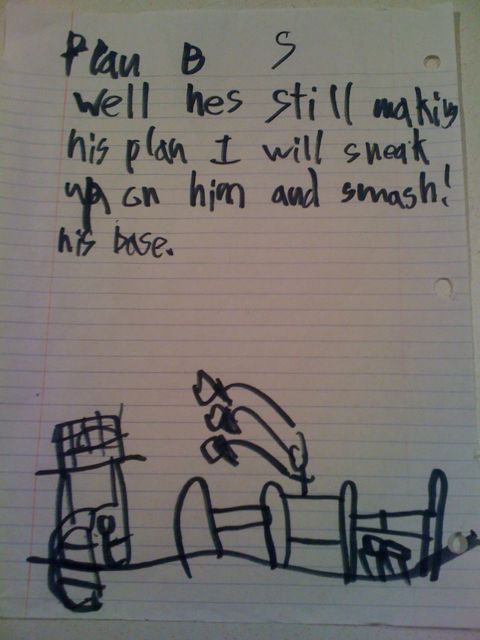 Plan B S
Well hes still making
his plan I will sneak
up on him and smash!
his base.